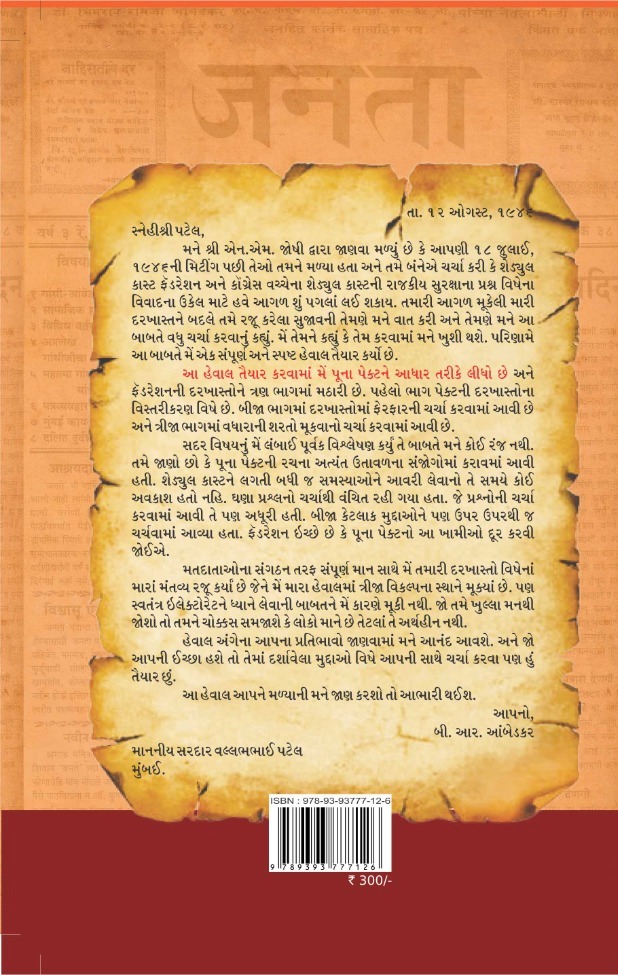 जनता
जाहिरातीचे दर
वर्ष ३ रें
તા. ૧૨ ઓગસ્ટ, ૧૯૪૬
સ્નેહીશ્રી પટેલ,
મને શ્રી એન.એમ. જોષી દ્વારા જાણવા મળ્યું છે કે આપણી ૧૮ જુલાઈ,
૧૯૪૬ની મિટીંગ પછી તેઓ તમને મળ્યા હતા અને તમે બંનેએ ચર્ચા કરી કે શેડ્યુલ
કાસ્ટ ફૅડરેશન અને કૉંગ્રેસ વચ્ચેના શેડ્યુલ કાસ્ટની રાજકીય સુરક્ષાના પ્રશ્ન વિષેના
વિવાદના ઉકેલ માટે હવે આગળ શું પગલાં લઈ શકાય. તમારી આગળ મૂકેલી મારી
દરખાસ્તને બદલે તમે રજૂ કરેલા સુજાવની તેમણે મને વાત કરી અને તેમણે મને આ
બાબતે વધુ ચર્ચા કરવાનું કહ્યું. મેં તેમને કહ્યું કે તેમ કરવામાં મને ખુશી થશે. પરિણામે
આ બાબતે મેં એક સંપૂર્ણ અને સ્પષ્ટ હેવાલ તૈયાર કર્યો છે.
આ હેવાલ તૈયાર કરવામાં મેં પૂના પેક્ટને આધાર તરીકે લીધો છે અને
ફૅડરેશનની દરખાસ્તોને ત્રણ ભાગમાં મઠારી છે. પહેલો ભાગ પેક્ટની દરખાસ્તોના
વિસ્તરીકરણ વિષે છે. બીજા ભાગમાં દરખાસ્તોમાં ફેરફારની ચર્ચા કરવામાં આવી છે
અને ત્રીજા ભાગમાં વધારાની શરતો મૂકવાનો ચર્ચા કરવામાં આવી છે.
સદર વિષયનું મેં લંબાઈ પૂર્વક વિશ્લેષણ કર્યું તે બાબતે મને કોઈ રંજ નથી.
તમે જાણો છો કે પૂના પેક્ટની રચના અત્યંત ઉતાવળના સંજોગોમાં કરાવમાં આવી
હતી. શેડ્યુલ કાસ્ટને લગતી બધી જ સમસ્યાઓને આવરી લેવાનો તે સમયે કોઈ
અવકાશ હતો નહિ. ઘણા પ્રશ્નો ચર્ચાથી વંચિત રહી ગયા હતા. જે પ્રશ્નોની ચર્ચા
કરવામાં આવી તે પણ અધૂરી હતી. બીજા કેટલાક મુદ્દાઓને પણ ઉપર ઉપરથી જ
ચર્ચવામાં આવ્યા હતા. ફૅડરેશન ઇચ્છે છે કે પૂના પેક્ટનો આ ખામીઓ દૂર કરવી
જોઈએ.
મતદાતાઓના સંગઠન તરફ સંપૂર્ણ માન સાથે મેં તમારી દરખાસ્તો વિષેનાં
મારાં મંતવ્ય રજૂ કર્યાં છે જેને મેં મારા હેવાલમાં ત્રીજા વિકલ્પના સ્થાને મૂક્યાં છે. પણ
સ્વતંત્ર ઇલેક્ટોરેટને ધ્યાને લેવાની બાબતને મેં કારણે મૂકી નથી. જો તમે ખુલ્લા મનથી
જોશો તો તમને ચોક્કસ સમજાશે કે લોકો માને છે તેટલાં તે અર્થહીન નથી.
હેવાલ અંગેના આપના પ્રતિભાવો જાણવામાં મને આનંદ આવશે. અને જો
આપની ઈચ્છા હશે તો તેમાં દર્શાવેલા મુદ્દાઓ વિષે આપની સાથે ચર્ચા કરવા પણ હું
તૈયાર છું.
આ હેવાલ આપને મળ્યાની મને જાણ કરશો તો આભારી થઈશ.
આપનો,
બી. આર. આંબેડકર
માનનીય સરદાર વલ્લભભાઈ પટેલ
મુંબઈ.
ISBN : 978-93-93777-12-6
9 789393 777126
₹ 300/-